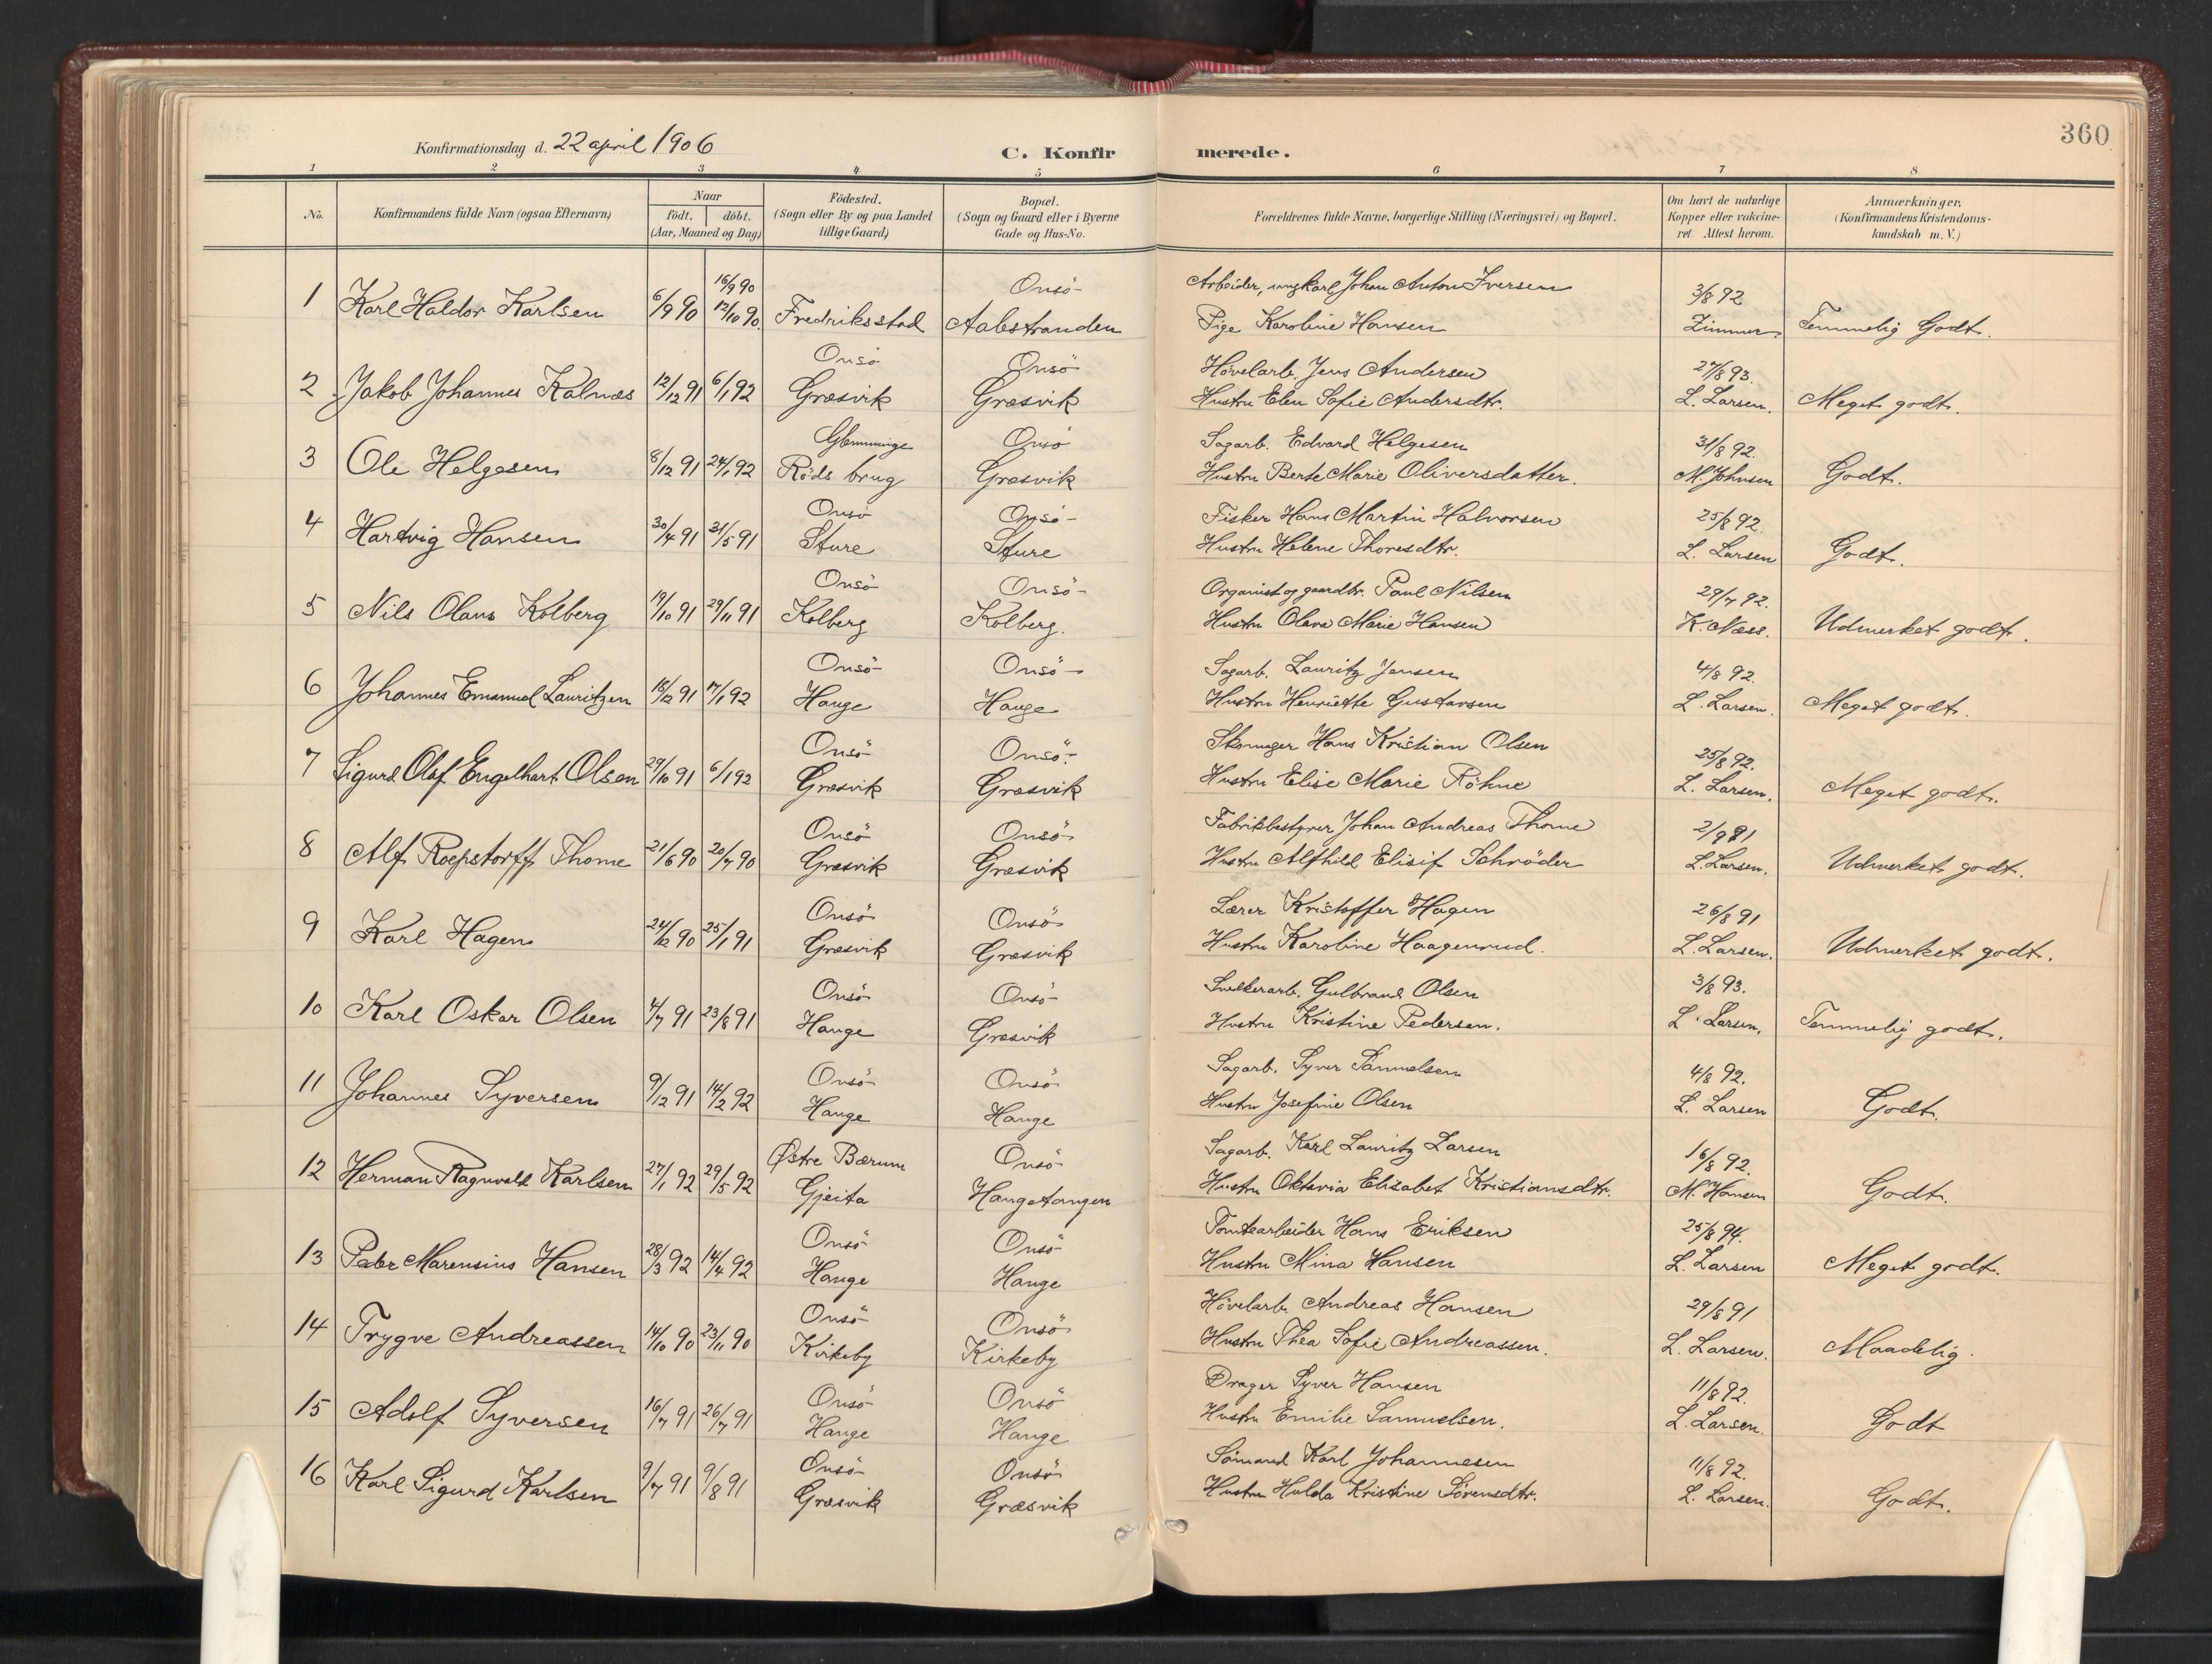 360
Konfirmationsdag d. 22 april 1906
C. Konfirmerede.
1 2 3 4 5 6 7 8
No.
Konfirmandens fulde Navn (ogsaa Efternavn)
Naar
födt. döbt.
(Aar, Maaned og Dag)
Födested.
(Sogn eller By og paa Landet
tillige Gaard)
Bopæl.
(Sogn og Gaard eller i Byerne
Gade og Hus-No.
Forældrenes fulde Navne, borgerlige Stilling (Næringsvei) og Bopæl.
Om havt de naturlige
Kopper eller vakcine-
ret. Attest herom.
Anmærkninger,
(Konfirmandens Kristendoms-
kundskab m. V.)
16/9 90 Onsö Arbeider, ungkarl Johan Anton Iversen 3/8 92
1 Karl Haldor Karlsen 6/9 90 12/10 90 Fredriksstad Aalestranden Pige Karoline Hansen Zimmer Temmelig Godt.
Onsö Onsö Hövelarb. Jens Andersen 27/8 93.
2 Jakob Johannes Kalnæs 12/12 91 6/1 92 Græsvik Græsvik Hustru Elen Sofie Andersdtr. L. Larsen. Meget godt.
Glemminge Onsö Sagarb. Edvard Helgesen 31/8 92.
3 Ole Helgesen 8/12 91 24/1 92 Röds brug Græsvik Hustru Berte Marie Oliversdatter. M. Johnsen Godt.
Onsö Onsö Fisker Hans Martin Halvorsen 25/8 92.
4 Hartvig Hansen 30/4 91 31/5 91 Sture Sture Hustru Helene Thoresdtr. L. Larsen Godt.
Onsö Onsö Organist og gaardbr. Paul Nilsen 29/7 92.
5 Nils Olaus Kolberg 19/10 91 29/11 91 Kolberg Kolberg. Hustru Olava Marie Hansen K. Næss. Udmerket godt.
Onsö Onsö Sagarb. Lauritz Jensen 4/8 92.
6 Johannes Emanuel Lauritzen 18/12 91 17/1 92 Hauge Hauge Hustru Henriette Gustavsen L. Larsen. Meget godt.
Onsö Onsö Skomager Hans Kristian Olsen 25/8 92.
7 Sigurd Olaf Engelhart Olsen 29/10 91 6/1 92 Græsvik Græsvik Hustru Elise Marie Röhne L. Larsen. Meget godt.
Onsö Onsö Fabrikbestyrer Johan Andreas Thorne 2/9 91
8 Alf Roepstorff Thorne 21/6 90 20/7 90 Græsvik Græsvik Hustru Alfhild Elisif Schröder L. Larsen. Udmerket godt.
Onsö Onsö Lærer Kristoffer Hagen 26/8 91
9 Karl Hagen 24/12 90 25/1 91 Græsvik Græsvik Hustru Karoline Haagenrud. L. Larsen. Udmerket godt.
Onsö Onsö Snedkerarb. Gulbrand Olsen 3/8 93.
10 Karl Oskar Olsen 4/7 91 23/8 91 Hauge Græsvik Hustru Kristine Pedersen. L. Larsen. Temmelig godt.
Onsö Onsö Sagarb. Syver Samuelsen 4/8 92.
11 Johannes Syversen 9/12 91 14/2 92 Hauge Hauge Hustru Josefine Olsen L. Larsen Godt.
Østre Bærum Onsö Sagarb. Karl Lauritz Larsen 16/8 92.
12 Herman Ragnvald Karlsen 27/1 92 29/5 92 Gjeita Haugetangen Hustru Oktavia Elisabet Kristiansdtr. M. Hansen Godt.
Onsö Onsö Tomtearbeider Hans Eriksen 25/8 94.
13 Peder Marensius Hansen 28/3 92 14/4 92 Hauge Hauge Hustru Mina Hansen L. Larsen Meget godt.
Onsö Onsö Hövelarb. Andreas Hansen 29/8 91
14 Trygve Andreassen 14/10 90 23/11 90 Kirkeby Kirkeby Hustru Thea Sofie Andreassen. L. Larsen. Maadelig.
Onsö Onsö Drager Syver Hansen 11/8 92.
15 Adolf Syversen 16/7 91 26/7 91 Hauge Hauge Hustru Emilie Samuelsen. L. Larsen. Godt
Onsö Onsö Sömand Karl Johannesen 11/8 92.
16 Karl Sigurd Karlsen 9/7 91 9/8 91 Græsvik Græsvik Hustru Hulda Kristine Sörensdtr. L. Larsen. Godt.